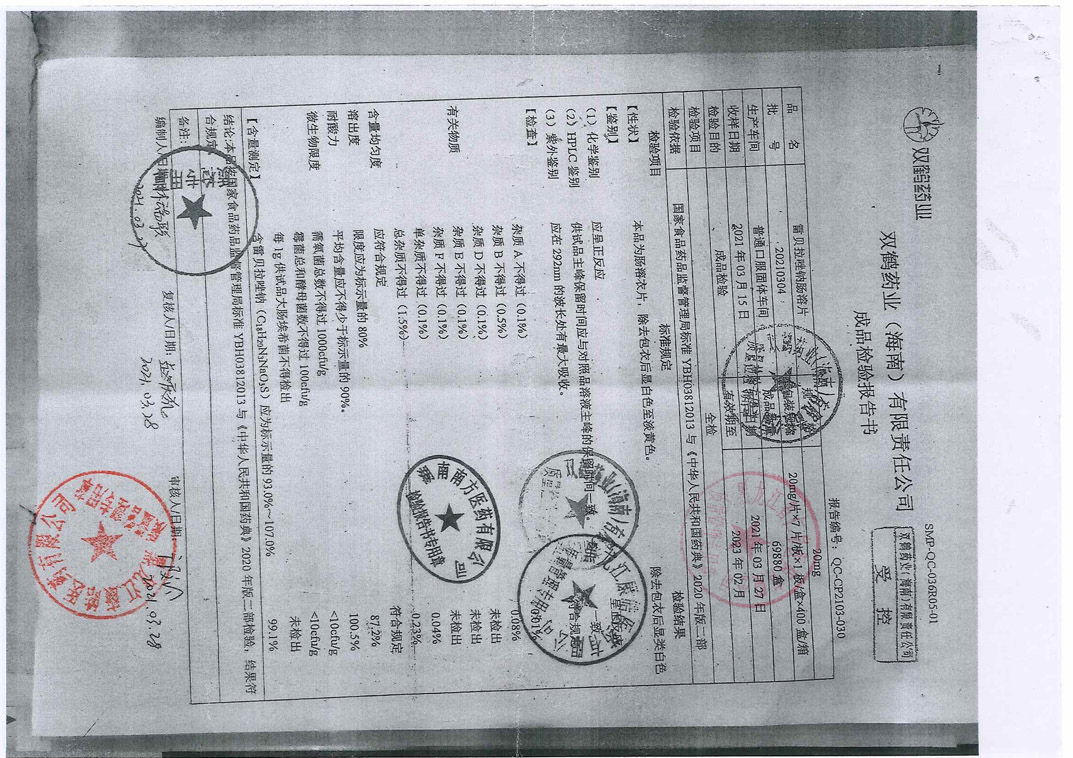 双鹤药业
SMP-QC-036R05-01
双鹤药业（海南）有限责任公司
双鹤药业(海南)有限责任公司
受控
成品检验报告书
报告编号：QC-CP2103-030
品名 雷贝拉唑钠肠溶片 20mg
批号 20210304 20mg/片×7片/板×1板/盒×400盒/箱
生产车间 普通口服固体车间 69880盒
收样日期 2021年03月15日 2021年03月27日
检验目的 成品检验 有效期至 2023年02月
检验项目 全检
检验依据 国家食品药品监督管理局标准YBH03812013与《中华人民共和国药典》2020年版二部
检验项目 标准规定 检验结果
【性状】 本品为肠溶衣片，除去包衣后显白色至淡黄色。 除去包衣后显类白色
【鉴别】
（1）化学鉴别 应呈正反应
（2）HPLC鉴别 供试品主峰保留时间应与对照品溶液主峰的保留时间一致。
（3）紫外鉴别 应在292nm的波长处有最大吸收。
【检查】
有关物质 杂质A不得过（0.1%） 0.08%
杂质B不得过（0.5%） 未检出
杂质D不得过（0.1%） 未检出
杂质E不得过（0.1%） 未检出
杂质F不得过（0.1%） 0.04%
单杂质不得过（0.1%）
总杂质不得过（1.5%） 0.23%
含量均匀度 应符合规定 符合规定
溶出度 限度应为标示量的80% 87.2%
耐酸力 平均含量应不得少于标示量的90%。 100.5%
微生物限度 需氧菌总数不得过1000cfu/g <10cfu/g
霉菌总和酵母菌数不得过100cfu/g <10cfu/g
每1g供试品大肠埃希菌不得检出 未检出
【含量测定】 含雷贝拉唑钠（C₁₈H₂₀N₃NaO₃S）应为标示量的93.0%～107.0% 99.1%
结论:本品按国家食品药品监督管理局标准YBH03812013与《中华人民共和国药典》2020年版二部检验，结果符合规定
备注：
编制人/日期： 2021.03.27 复核人/日期： 2021.03.28 审核人/日期： 2021.03.28
南方医药有限公司
检验报告书专用章